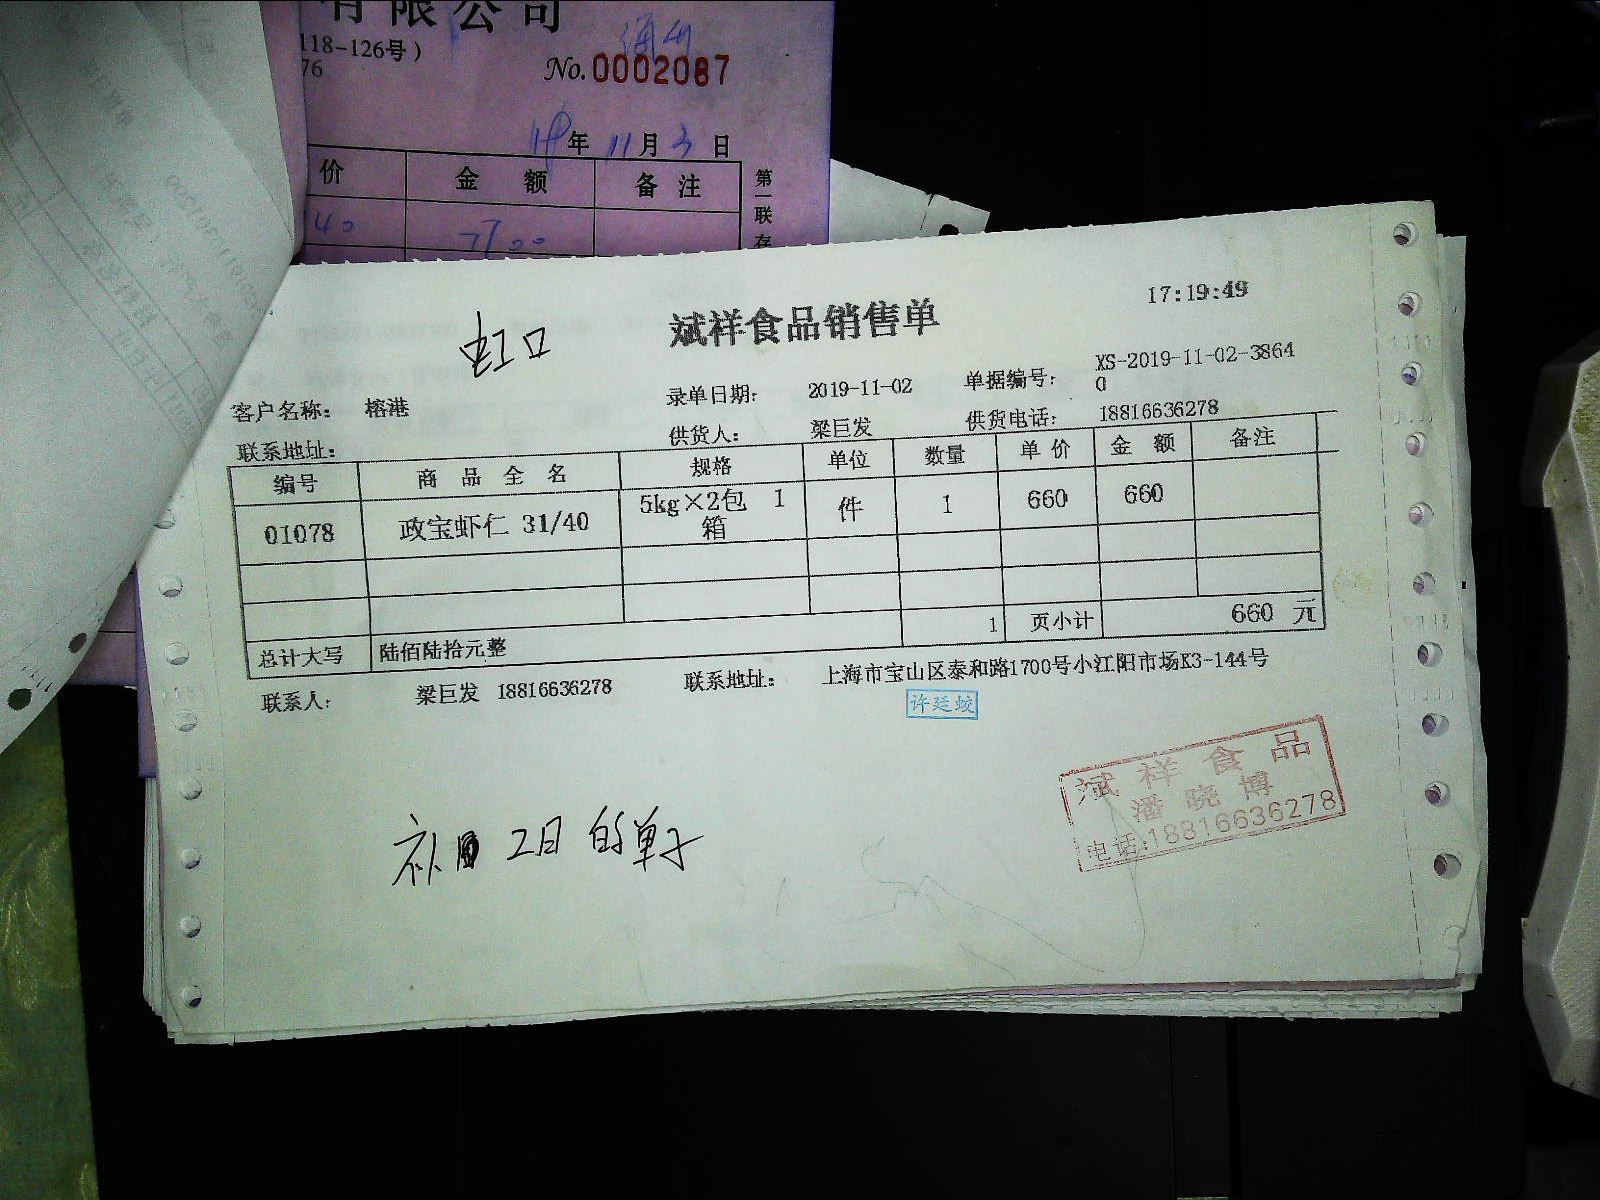 有限公司
118-126号）
76
No. 0002087
19年 11月 3日
价 金 额 备 注
40 7100
第一联存
虹口
斌祥食品销售单
17:19:49
客户名称： 榕港 录单日期： 2019-11-02 单据编号： XS-2019-11-02-3864
0
联系地址： 供货人： 梁巨发 供货电话： 18816636278
编号 商 品 全 名 规格 单位 数量 单 价 金 额 备注
01078 政宝虾仁 31/40 5kg×2包 1 件 1 660 660
箱
总计大写 陆佰陆拾元整 1 页小计 660 元
联系人： 梁巨发 18816636278 联系地址： 上海市宝山区泰和路1700号小江阳市场K3-144号
许廷蛟
斌祥食品
潘晓博
电话:18816636278
补 2日 的单子